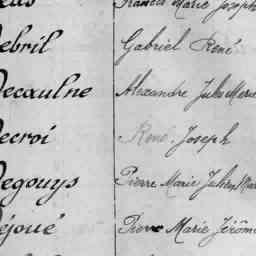 Francis Marie Joseph
Debril Gabriel René
Decaulne Alexandre Jules Marie
Decroi René Joseph
Degouys Pierre Marie Julien
Déjoué Pierre Marie Jérôme